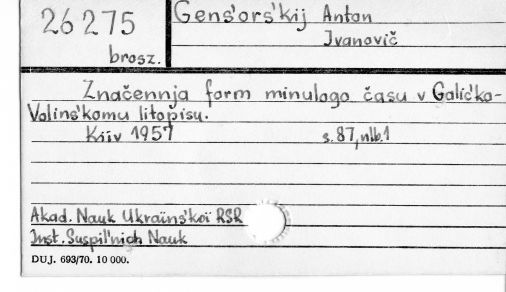 26275
brosz.
Gens'ors'kij Anton
Ivanovič
Značennja form minulogo času v Galic'ko-
Volins'komu litopisu.
Kiiv 1957 s. 87, nlb. 1
Akad. Nauk Ukraïns'koï RSR
Inst. Suspil'nich Nauk
DUJ. 693/70. 10 000.